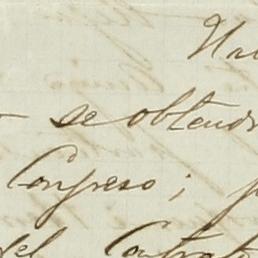 Ha
se obtendr
Congreso; p
del Contrato